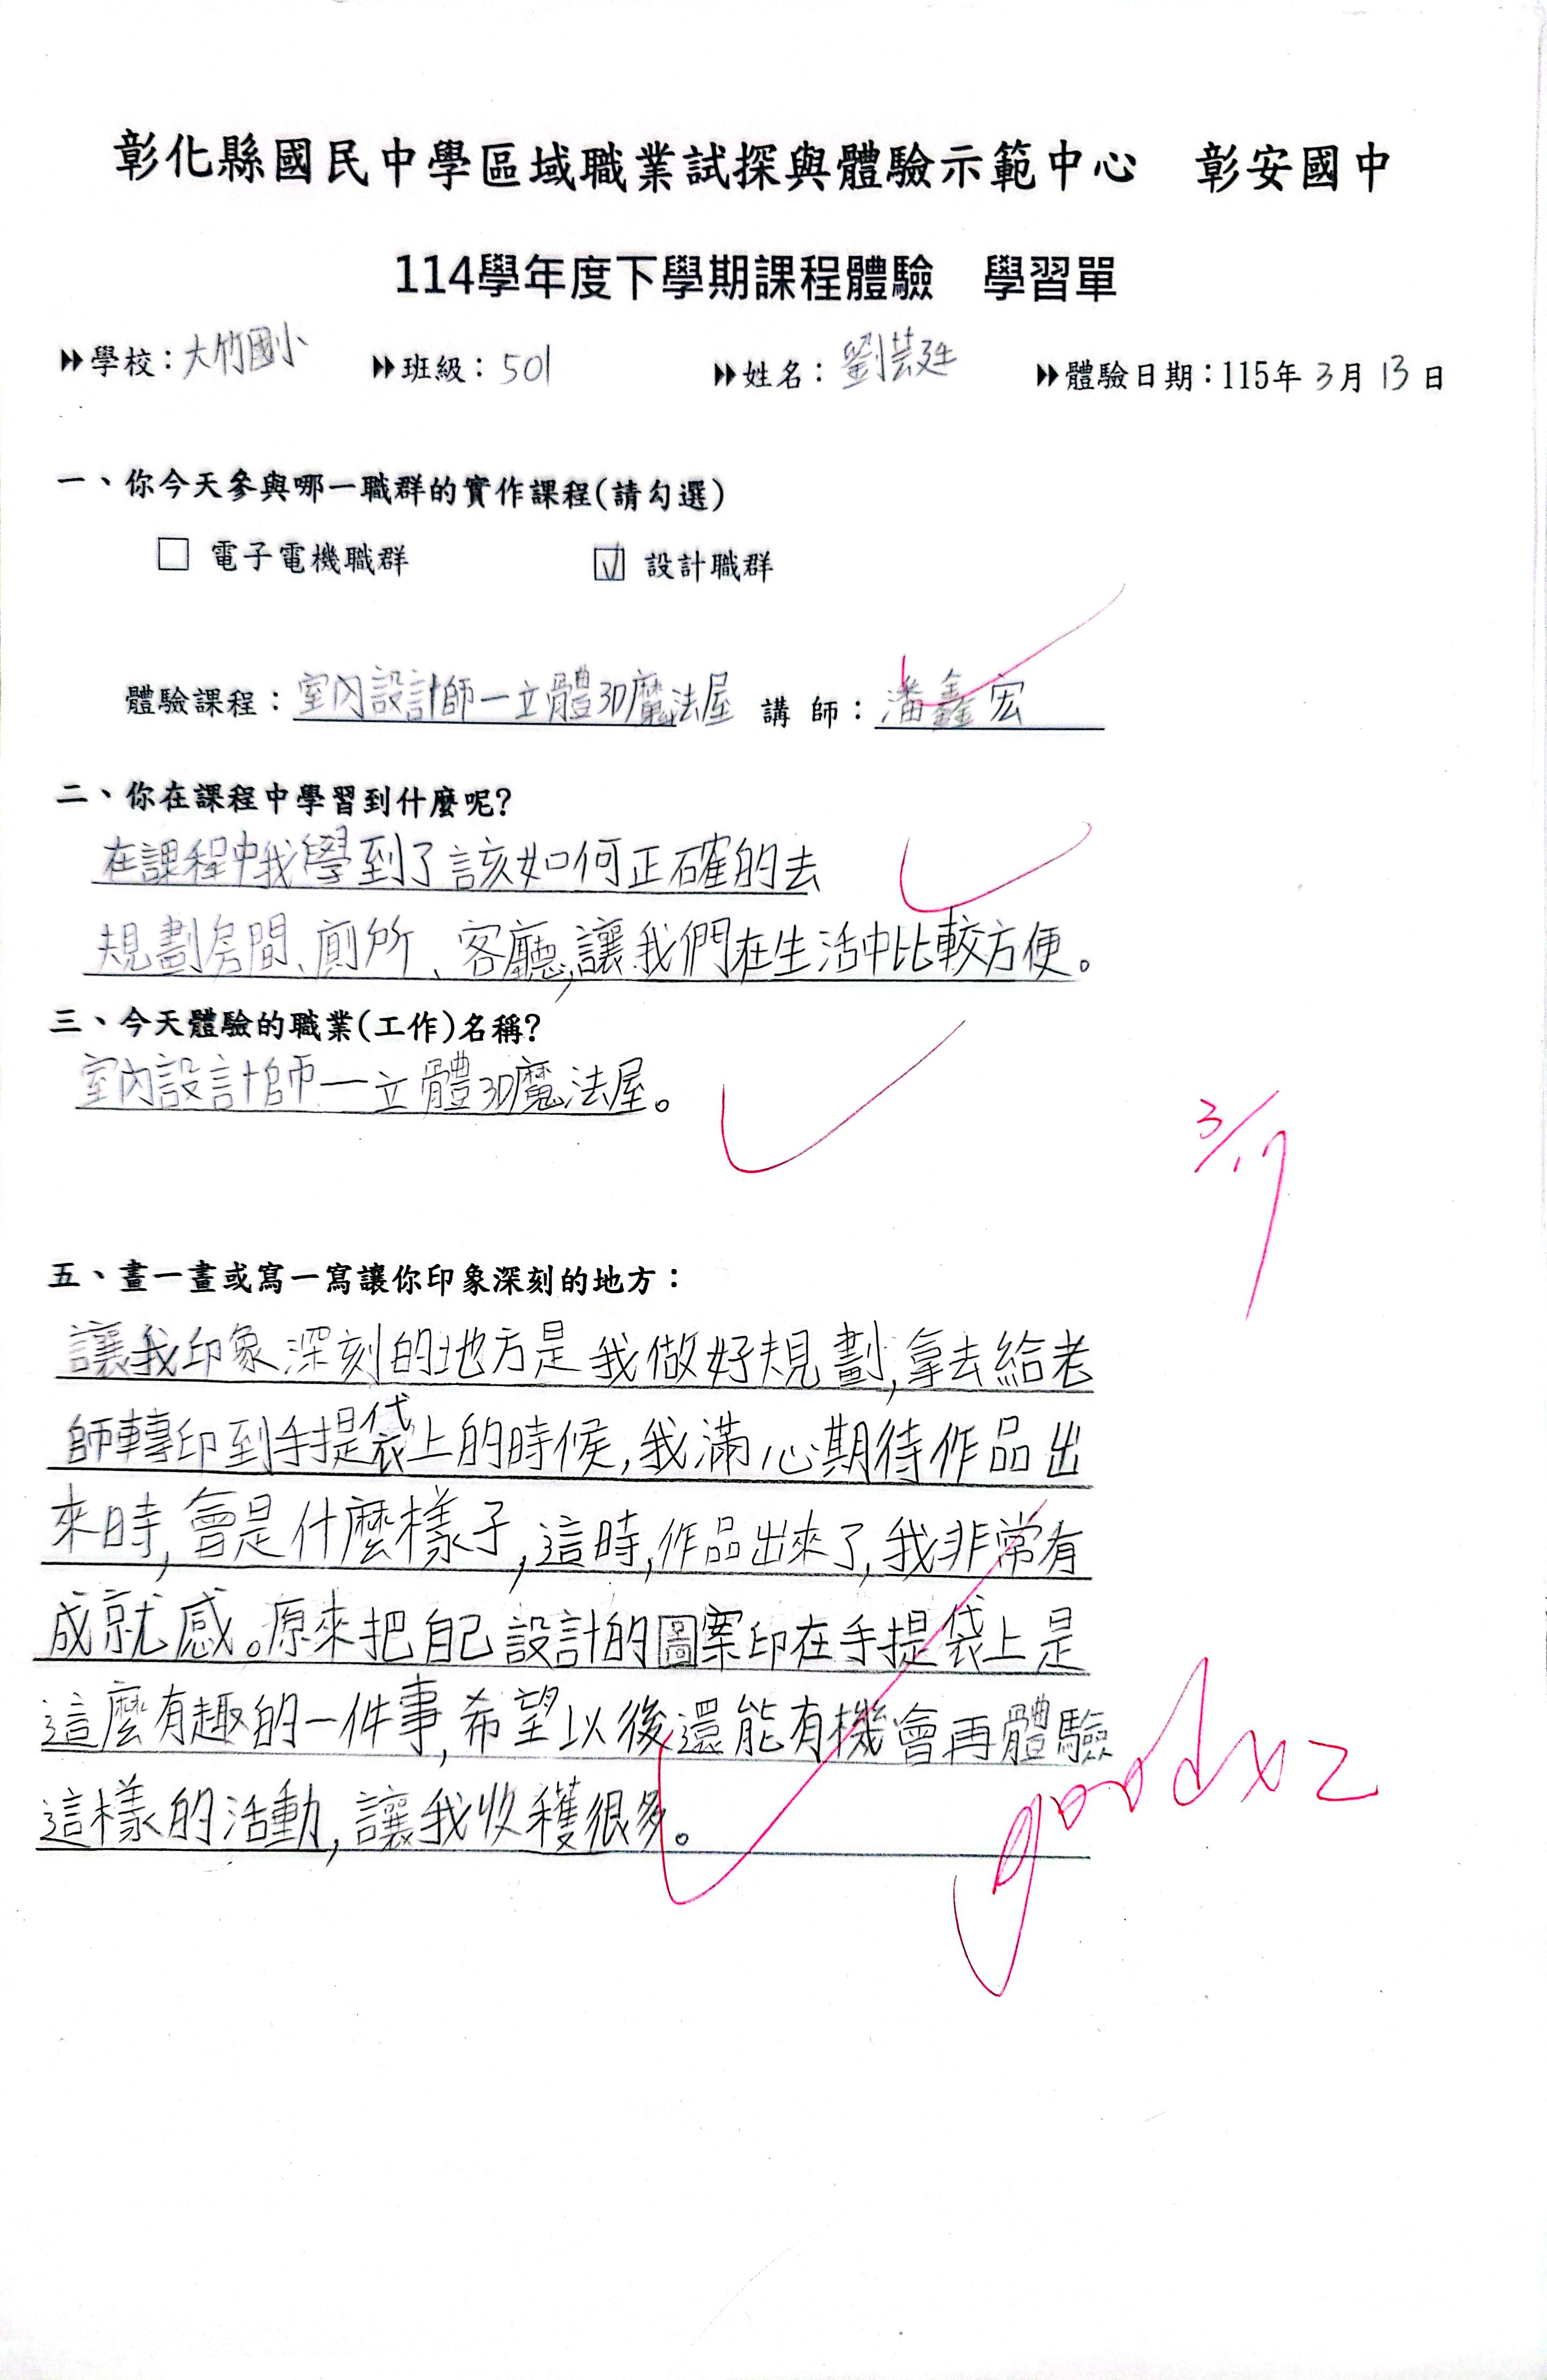 彰化縣國民中學區域職業試探與體驗示範中心　彰安國中
114學年度下學期課程體驗　學習單
學校：大竹國小　班級：501　姓名：劉芸廷　體驗日期：115年3月13日
一、你今天參與哪一職群的實作課程(請勾選)
□ 電子電機職群　☑ 設計職群
體驗課程：室內設計師—立體3D魔法屋 講 師：潘鑫宏
二、你在課程中學習到什麼呢?
在課程中我學到了該如何正確的去
規劃房間、廁所、客廳,讓我們在生活中比較方便。
三、今天體驗的職業(工作)名稱?
室內設計師—立體3D魔法屋。
3/17
五、畫一畫或寫一寫讓你印象深刻的地方：
讓我印象深刻的地方是我做好規劃,拿去給老
師轉印到手提袋上的時候,我滿心期待作品出
來時,會是什麼樣子,這時,作品出來了,我非常有
成就感。原來把自己設計的圖案印在手提袋上是
這麼有趣的一件事,希望以後還能有機會再體驗
這樣的活動,讓我收穫很多。
goodx2